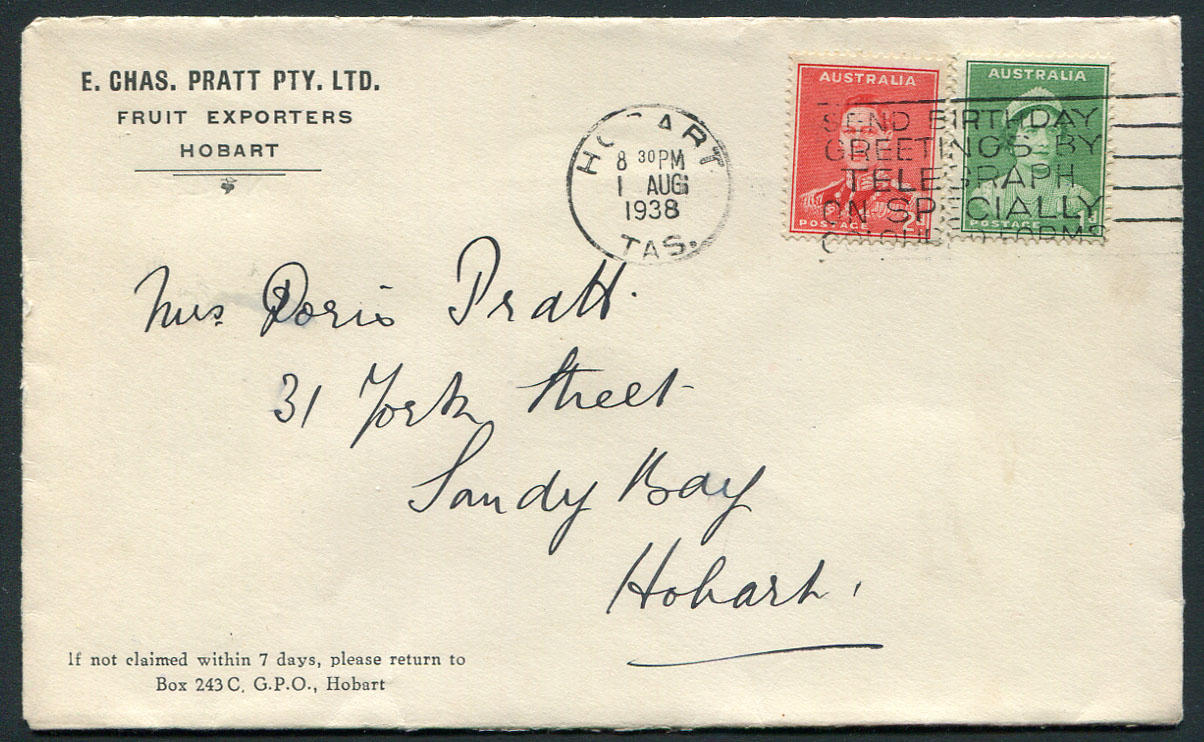 E. CHAS. PRATT PTY. LTD.
FRUIT EXPORTERS
HOBART
HOBART
8 30PM
1 AUG
1938
TAS.
AUSTRALIA
POSTAGE 2d
AUSTRALIA
POSTAGE 1d
SEND BIRTHDAY
GREETINGS BY
TELEGRAPH
ON SPECIALLY
FORMS
Mrs. Doris Pratt.
31 York Street
Sandy Bay
Hobart.
If not claimed within 7 days, please return to
Box 243 C, G.P.O., Hobart